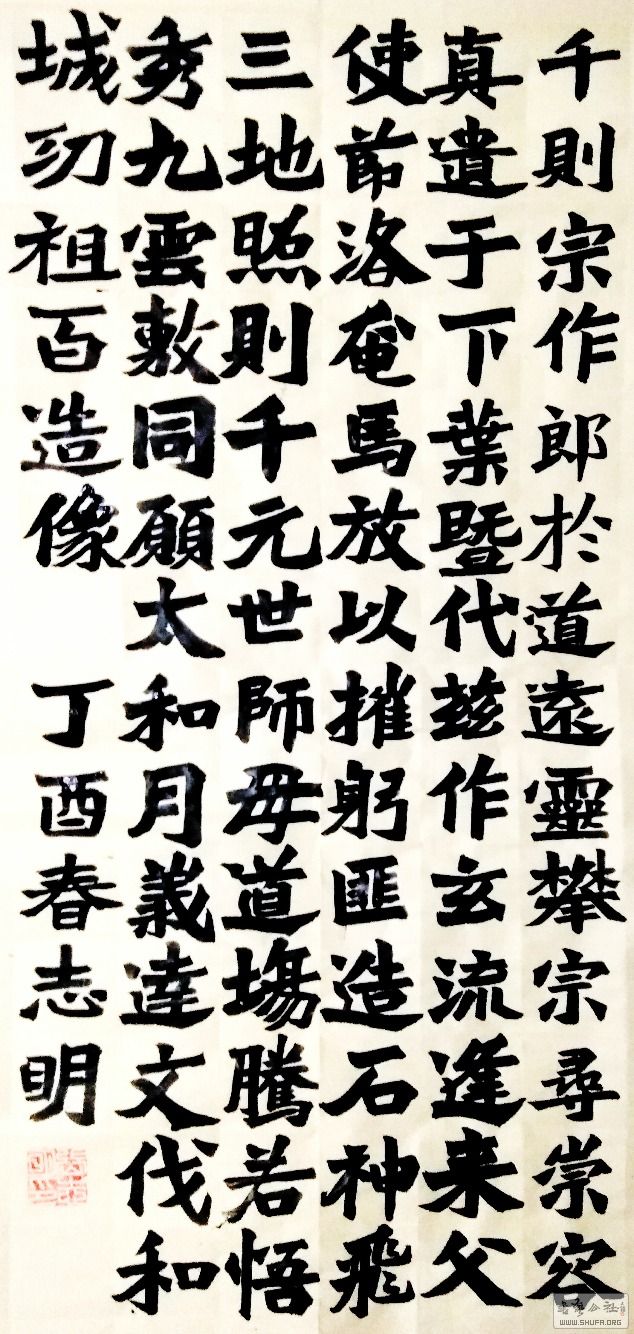 千則宗作郎於道遠靈攀宗尋崇容
真遺于下葉暨代茲作玄流逢来父
使節洛奄馬放以摧躬匪造石神飛
三地照則千元世師母道塲騰若悟
秀九雲敷同願太和月義達文伐和
城祖百造像 丁酉春志明
書法公社
WWW.SHUFA.ORG